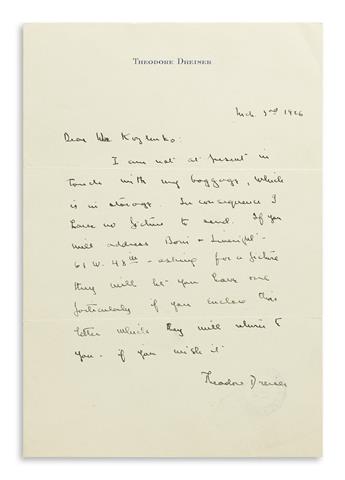 THEODORE DREISER
Mch. 3rd 1926
Dear Kozlenko:
I am not at present in
touch with my baggage, which
is in storage. In consequence I
have no picture to send. If you
will address Boni + Liveright -
61 W. 48th - asking for a picture
they will let you have one
particularly if you enclose this
letter which they will return to
you - if you wish it
Theodore Dreiser